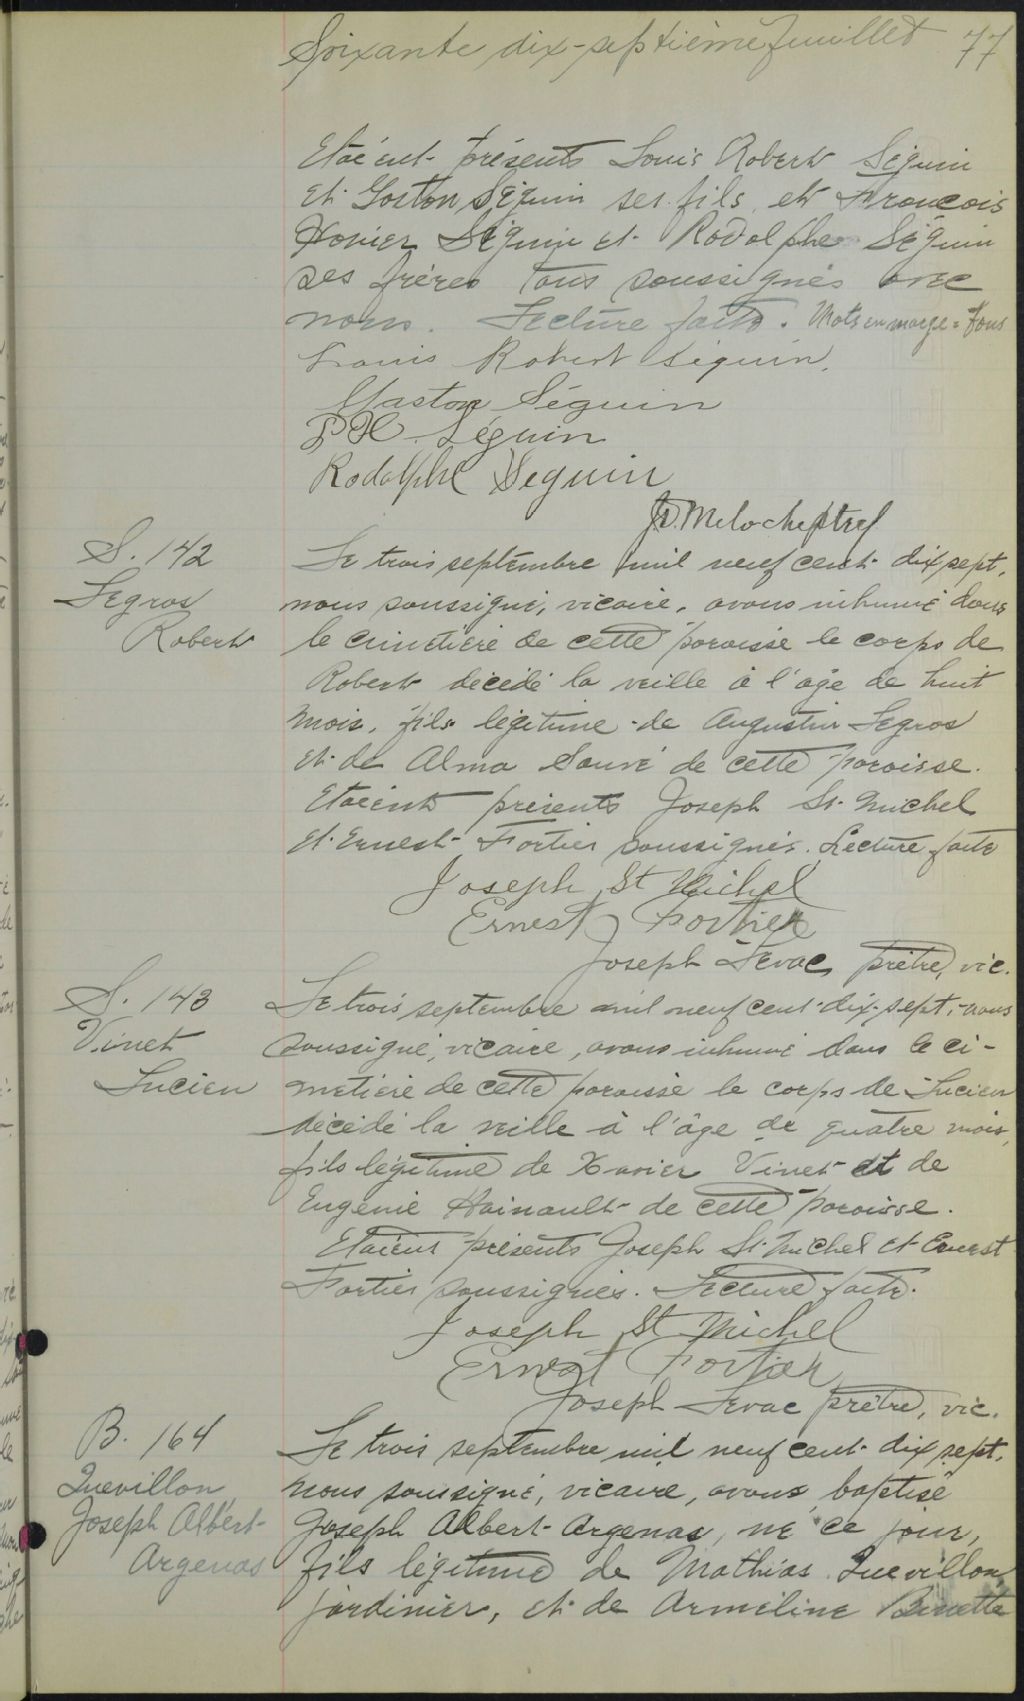 Soixante dix-septième feuillet 77
Etaient présents Louis Robert Séguin
et Gaston Séguin ses fils et François
Xavier Séguin et Rodolphe Séguin
ses frères tous soussignés avec
nous. Lecture faite. Mots en marge = Tous
Louis Robert Séguin.
Gaston Séguin
FX Séguin
Rodolphe Seguin
Meloche ptre
S. 142
Legros
Robert
Le trois septembre mil neuf cent dix sept,
nous soussigné, vicaire, avons inhumé dans
le cimetière de cette paroisse le corps de
Robert décédé la veille à l'âge de huit
mois, fils légitime de Augustin Legros
et de Alma Sauvé de cette paroisse.
Etaient présents Joseph St. Michel
et Ernest Fortier soussignés. Lecture faite
Joseph St Michel
Ernest Fortier
Joseph Levac prêtre, vic.
S. 143
Vinet
Lucien
Le trois septembre mil neuf cent dix-sept, nous
soussigné, vicaire, avons inhumé dans le ci-
metière de cette paroisse le corps de Lucien
décédé la veille à l'âge de quatre mois,
fils légitime de Xavier Vinet et de
Eugenie Hainault de cette paroisse.
Etaient présents Joseph St. Michel et Ernest
Fortier soussignés. Lecture faite.
Joseph St Michel
Ernest Fortier
Joseph Levac prêtre, vic.
B. 164
Quevillon
Joseph Albert
Argenas
Le trois septembre mil neuf cent dix sept,
nous soussigné, vicaire, avons baptisé
Joseph Albert Argenas, né ce jour,
fils légitime de Mathias Quevillon
jardinier, et de Armeline Binette